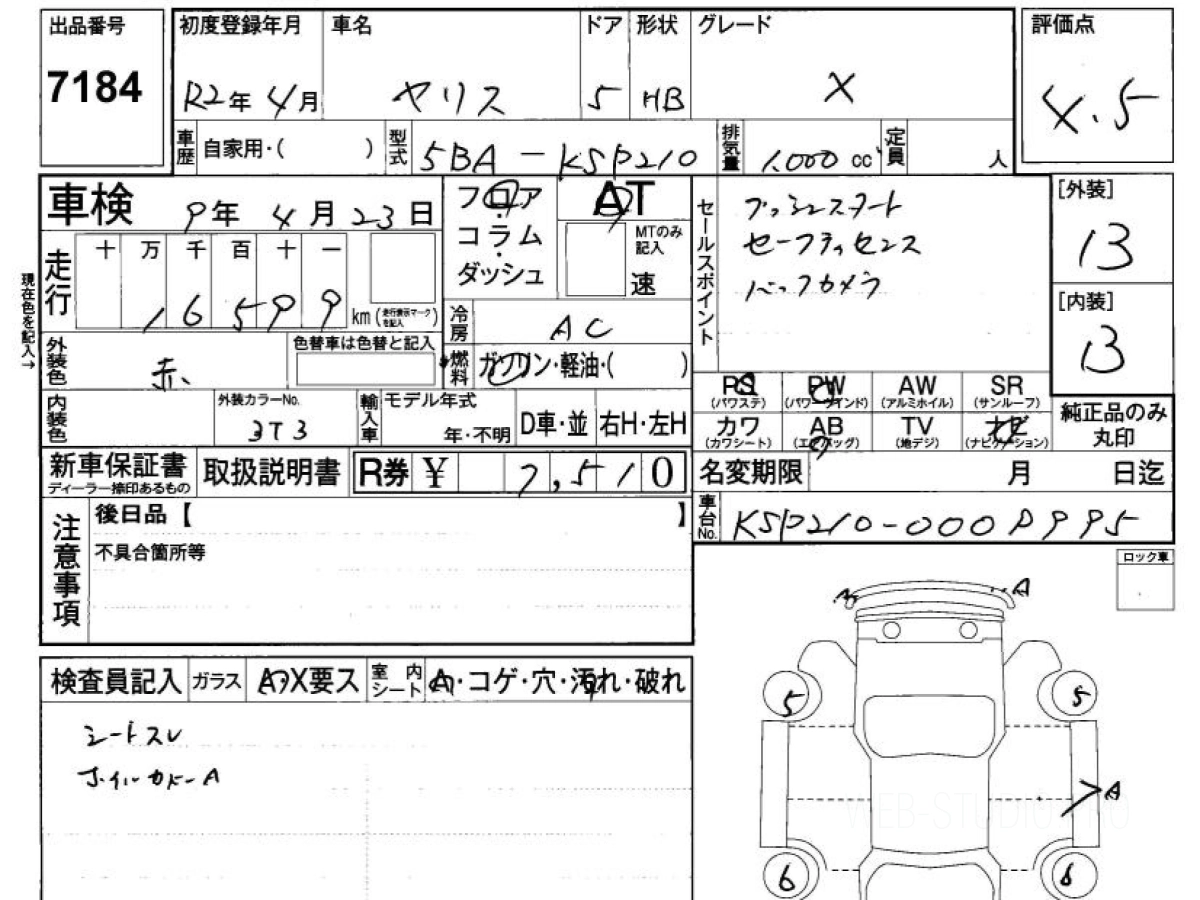 出品番号
7184
初度登録年月 車名 ドア 形状 グレード
R2年 4月 ヤリス 5 HB X
評価点
4.5
車歴 自家用・( ) 型式 5BA-KSP210 排気量 1.000 cc 定員 人
車検 9年 4月 23日
フロア
・
コラム
・
ダッシュ
AT
MTのみ記入
速
走行 十 万 千 百 十 一
1 6 5 9 9 km (走行表示マークを記入)
現在色を記入→
セールスポイント
プッシュスタート
セーフティセンス
バックカメラ
[外装]
13
[内装]
13
冷房 AC
外装色 赤 色替車は色替と記入
燃料 ガソリン・軽油・( )
内装色 外装カラーNo. 3T3
輸入車 モデル年式 年・不明 D車・並 右H・左H
PS (パワステ) PW (パワーウインド) AW (アルミホイル) SR (サンルーフ)
カワ (カワシート) AB (エアバッグ) TV (地デジ) ナビ (ナビゲーション)
純正品のみ
丸印
新車保証書 ディーラー捺印あるもの 取扱説明書 R券 ¥ 7,510
名変期限 月 日迄
車台No. KSP210-0009995
注意事項
後日品【 】
不具合箇所等
ロック車
A
検査員記入 ガラス A・X要ス 室内シート A・コゲ・穴・汚れ・破れ
シートスレ
ホイルカバーA
5 5
A
WEB-STUDIO PRO
6 6